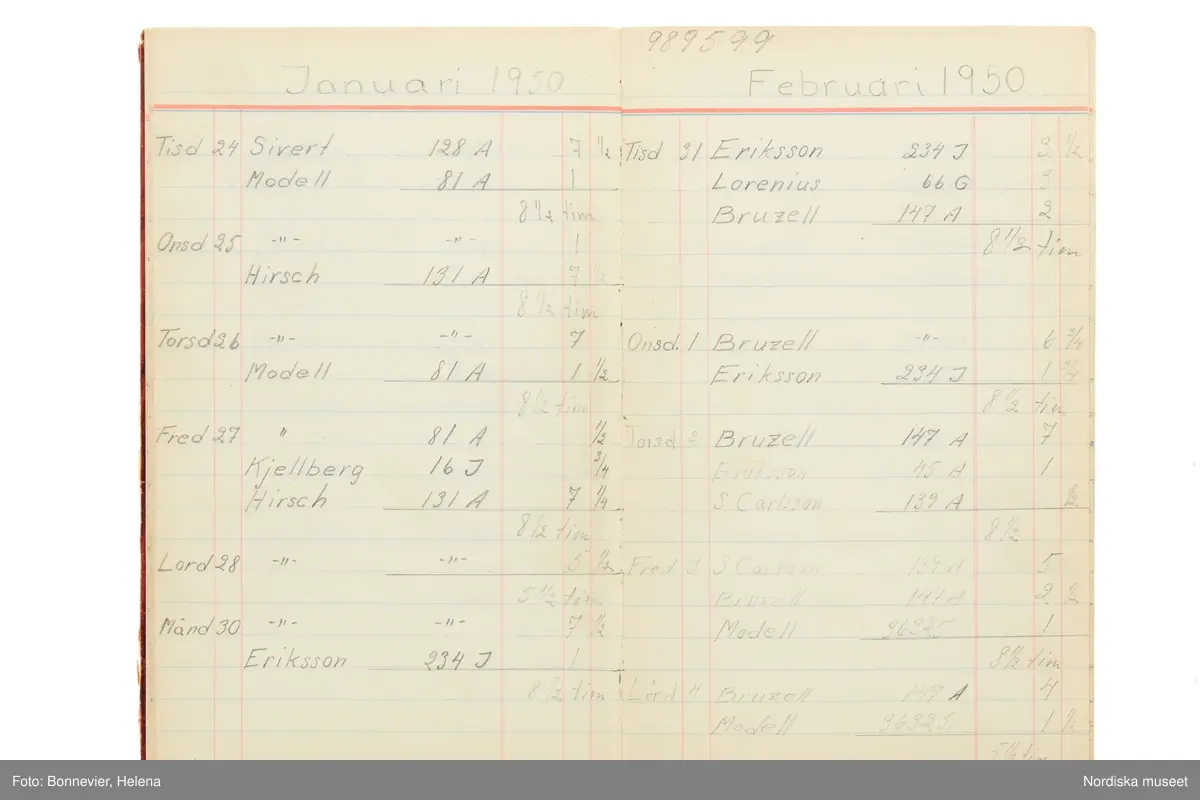 Januari 1950
Tisd 24 Sivert 128 A 7 1/2
Modell 81 A 1
8 1/2 tim
Onsd 25 -"- -"- 1
Hirsch 131 A 7 1/2
8 1/2 tim
Torsd 26 -"- -"- 7
Modell 81 A 1 1/2
8 1/2 tim
Fred 27 " 81 A 1/2
Kjellberg 16 J 3/4
Hirsch 131 A 7 1/4
8 1/2 tim
Lord 28 -"- -"- 5 1/2
5 1/2 tim
Månd 30 -"- -"- 7 1/2
Eriksson 234 J 1
8 1/2 tim
989599
Februari 1950
Tisd 31 Eriksson 234 J 3 1/2
Lorenius 66 G 3
Bruzell 147 A 2
8 1/2 tim
Onsd. 1 Bruzell -"- 6 3/4
Eriksson 234 J 1 3/4
8 1/2 tim
Torsd 2 Bruzell 147 A 7
Eriksson 45 A 1
S Carlsson 139 A 1/2
8 1/2
Fred 3 S Carlsson 139 A 5
Bruzell 147 A 2 1/2
Modell 36325 1
8 1/2 tim
Lörd 4 Bruzell 147 A 4
Modell 36325 1 1/2
5 1/2 tim
Foto: Bonnevier, Helena
Nordiska museet